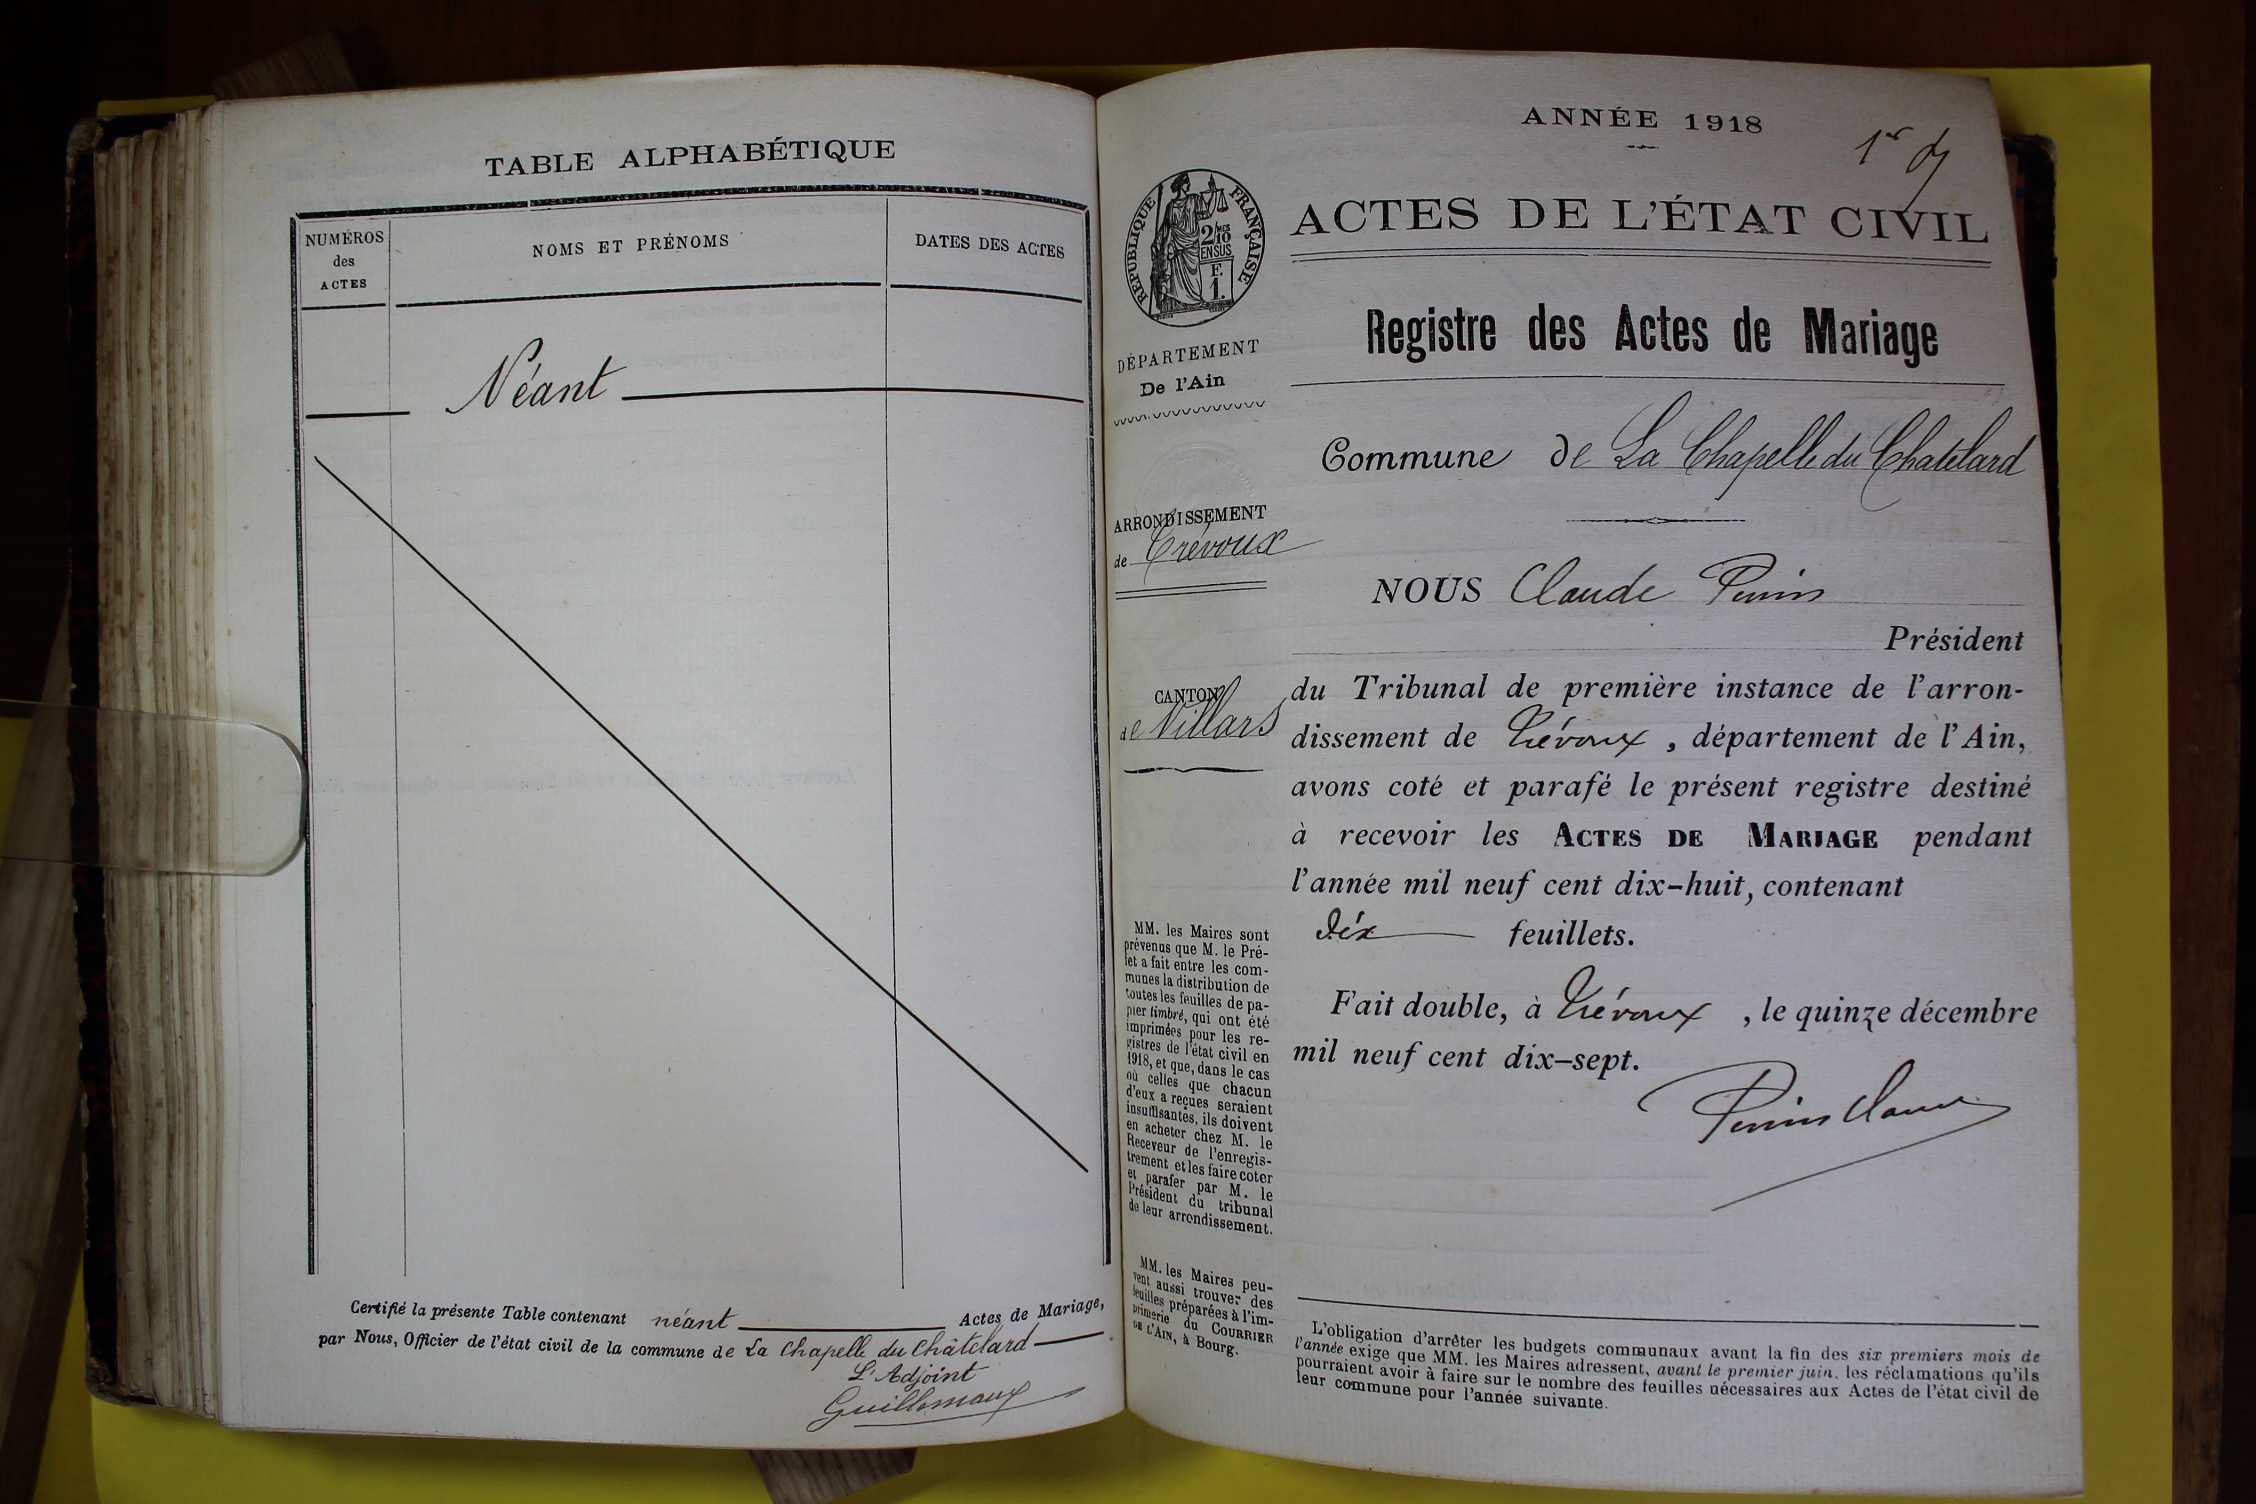 TABLE ALPHABÉTIQUE
NUMÉROS
des
ACTES
NOMS ET PRÉNOMS
DATES DES ACTES
Néant
Certifié la présente Table contenant néant Actes de Mariage,
par Nous, Officier de l'état civil de la commune de La Chapelle du Châtelard
L'Adjoint
Guillemaux
ANNÉE 1918
1er
ACTES DE L'ÉTAT CIVIL
Registre des Actes de Mariage
RÉPUBLIQUE FRANÇAISE
2/10
EN SUS
F.
1.
DÉPARTEMENT
De l'Ain
ARRONDISSEMENT
de Trévoux
CANTON
de Villars
MM. les Maires sont
prévenus que M. le Pré-
fet a fait entre les com-
munes la distribution de
toutes les feuilles de pa-
pier timbré, qui ont été
imprimées pour les re-
gistres de l'état civil en
1918, et que, dans le cas
où celles que chacun
d'eux a reçues seraient
insuffisantes, ils doivent
en acheter chez M. le
Receveur de l'enregis-
trement et les faire coter
et parafer par M. le
Président du tribunal
de leur arrondissement.
MM. les Maires peu-
vent aussi trouver des
feuilles préparées à l'im-
primerie du COURRIER
DE L'AIN, à Bourg.
Commune de La Chapelle du Chatelard
NOUS Claude
Président
du Tribunal de première instance de l'arron-
dissement de Trévoux, département de l'Ain,
avons coté et parafé le présent registre destiné
à recevoir les ACTES DE MARIAGE pendant
l'année mil neuf cent dix-huit, contenant
dix feuillets.
Fait double, à Trévoux, le quinze décembre
mil neuf cent dix-sept.
L'obligation d'arrêter les budgets communaux avant la fin des six premiers mois de
l'année exige que MM. les Maires adressent, avant le premier juin, les réclamations qu'ils
pourraient avoir à faire sur le nombre des feuilles nécessaires aux Actes de l'état civil de
leur commune pour l'année suivante.